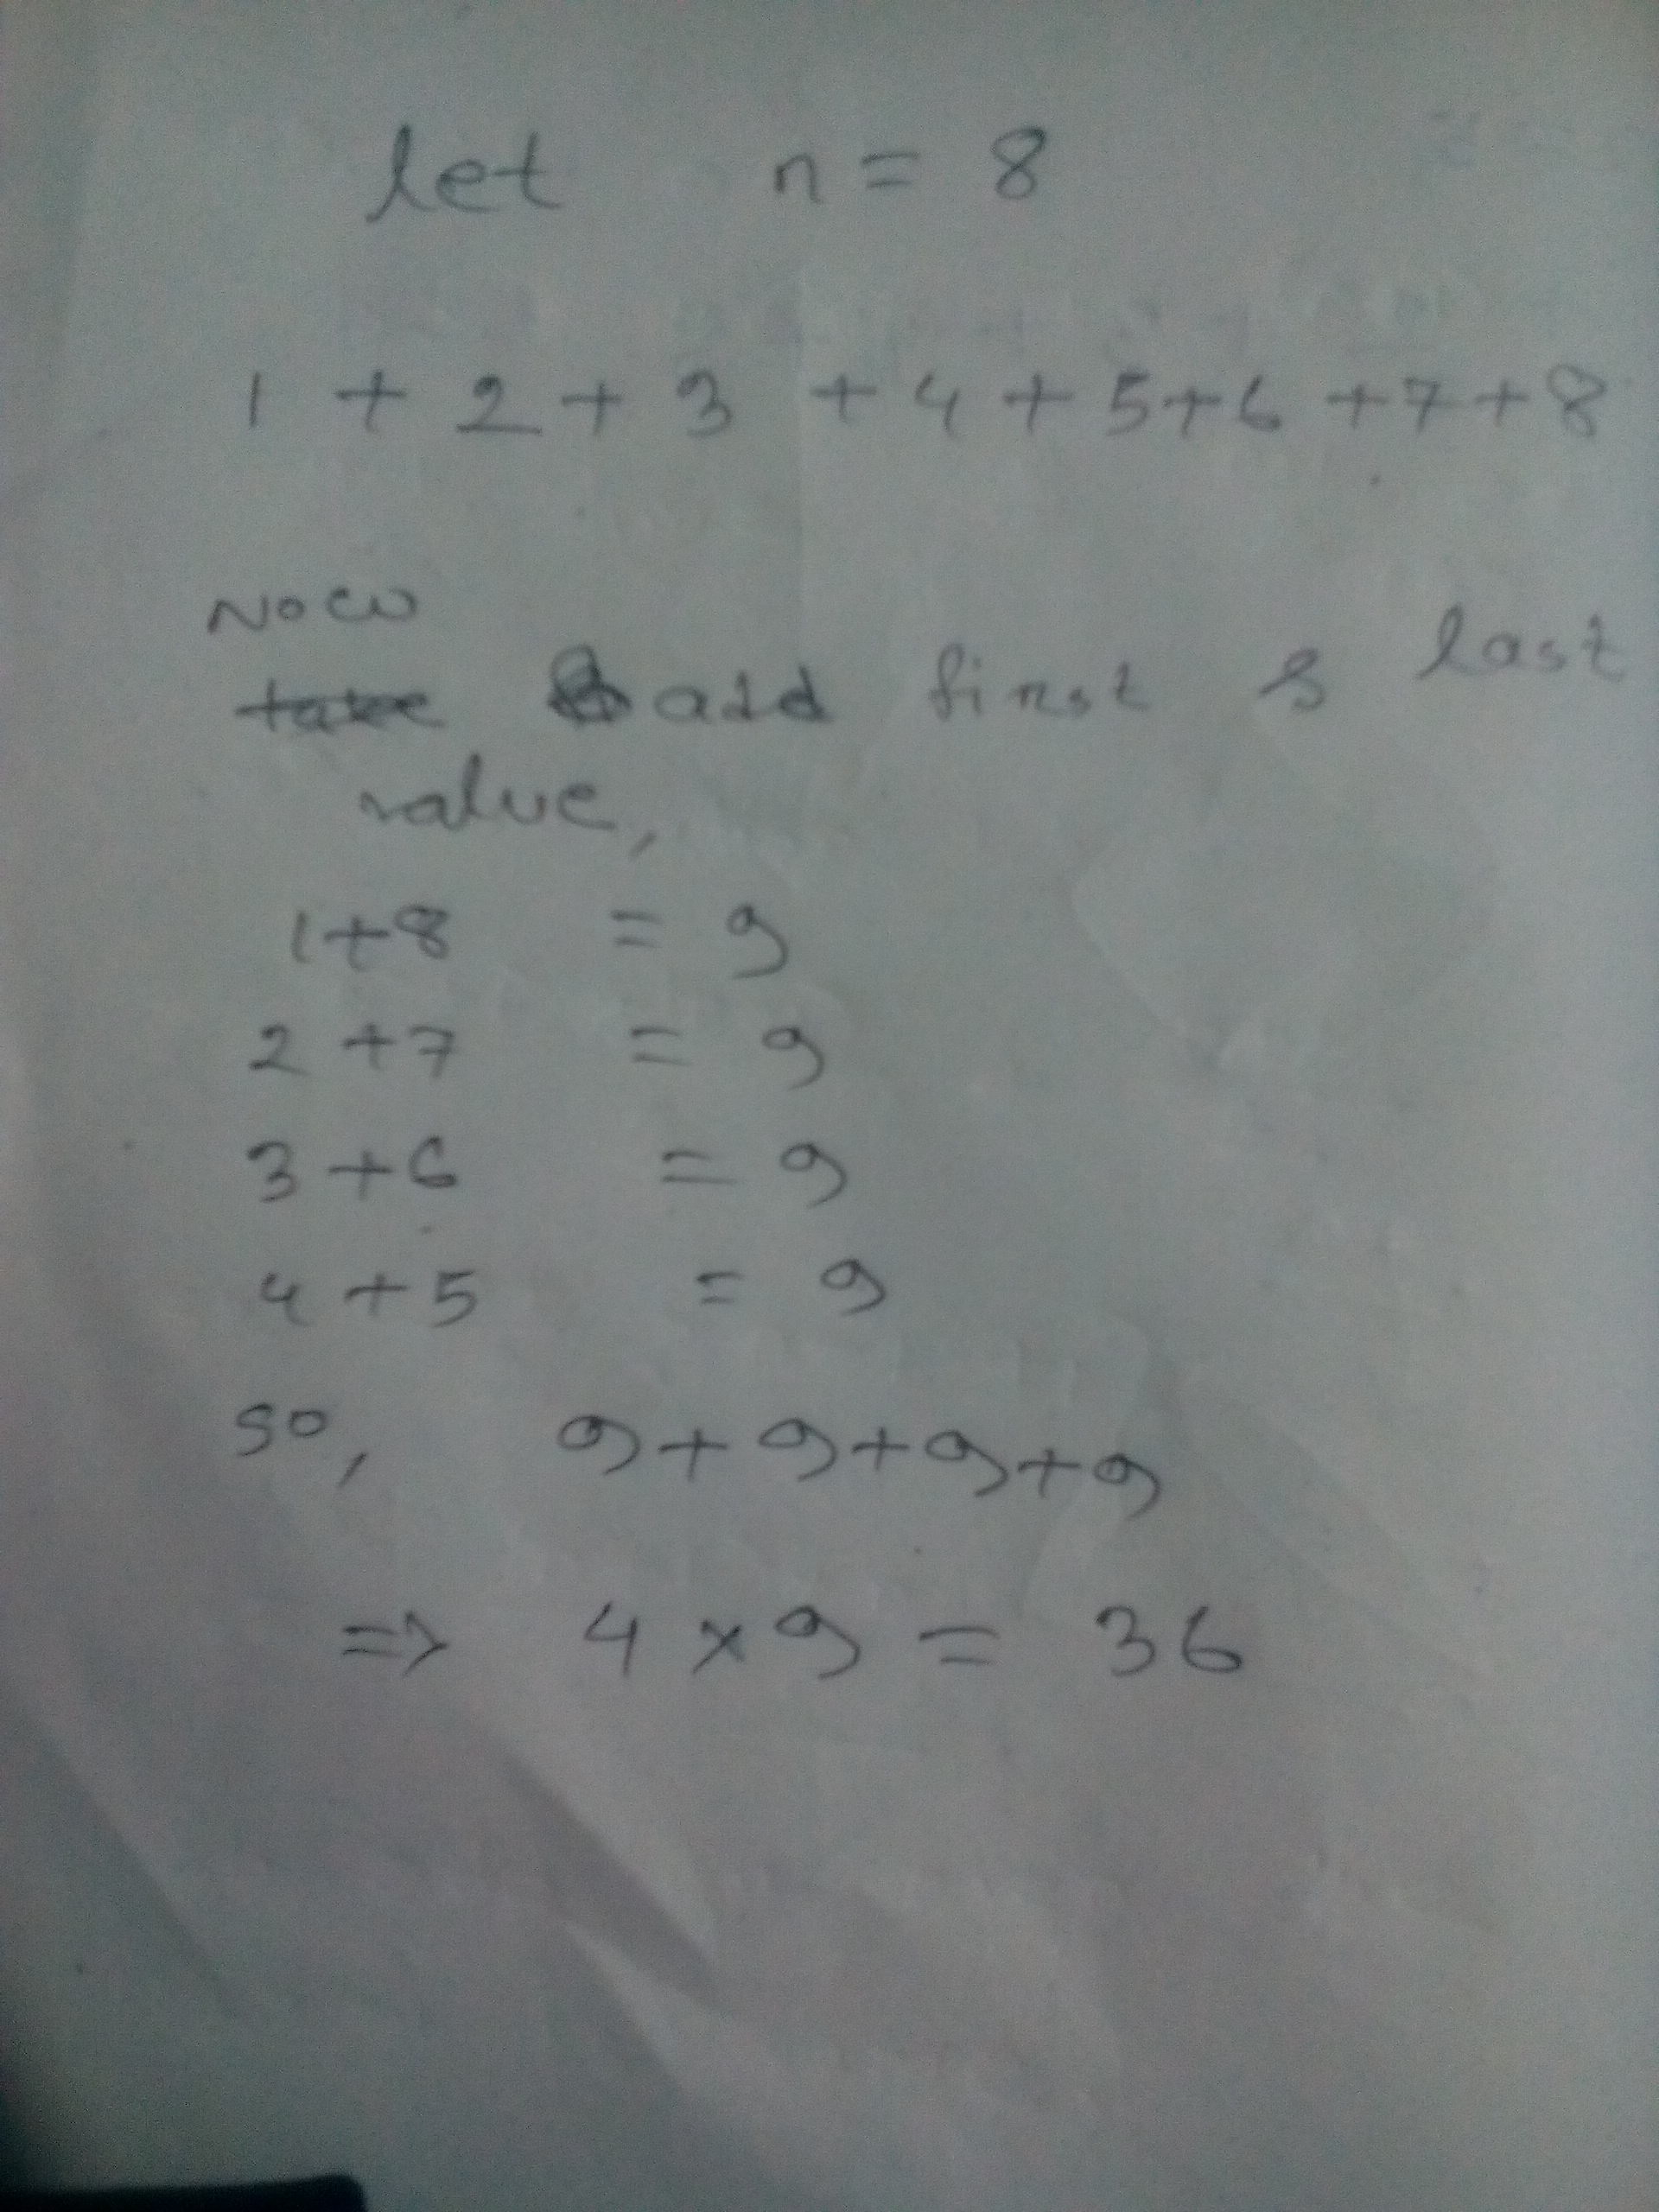 let n = 8
1 + 2 + 3 + 4 + 5 + 6 + 7 + 8
Now
take add first & last
value,
1+8 = 9
2+7 = 9
3+6 = 9
4+5 = 9
so, 9+9+9+9
=> 4 × 9 = 36